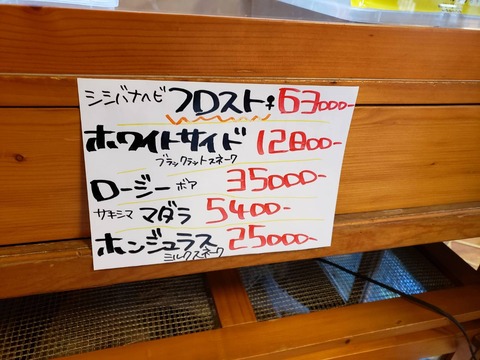 シシバナヘビ フロスト♀ 63000-
ホワイトサイド 12800-
ブラックラットスネーク
ロージーボア 35000-
サキシママダラ 5400-
ホンジュラス 25000-
ミルクスネーク